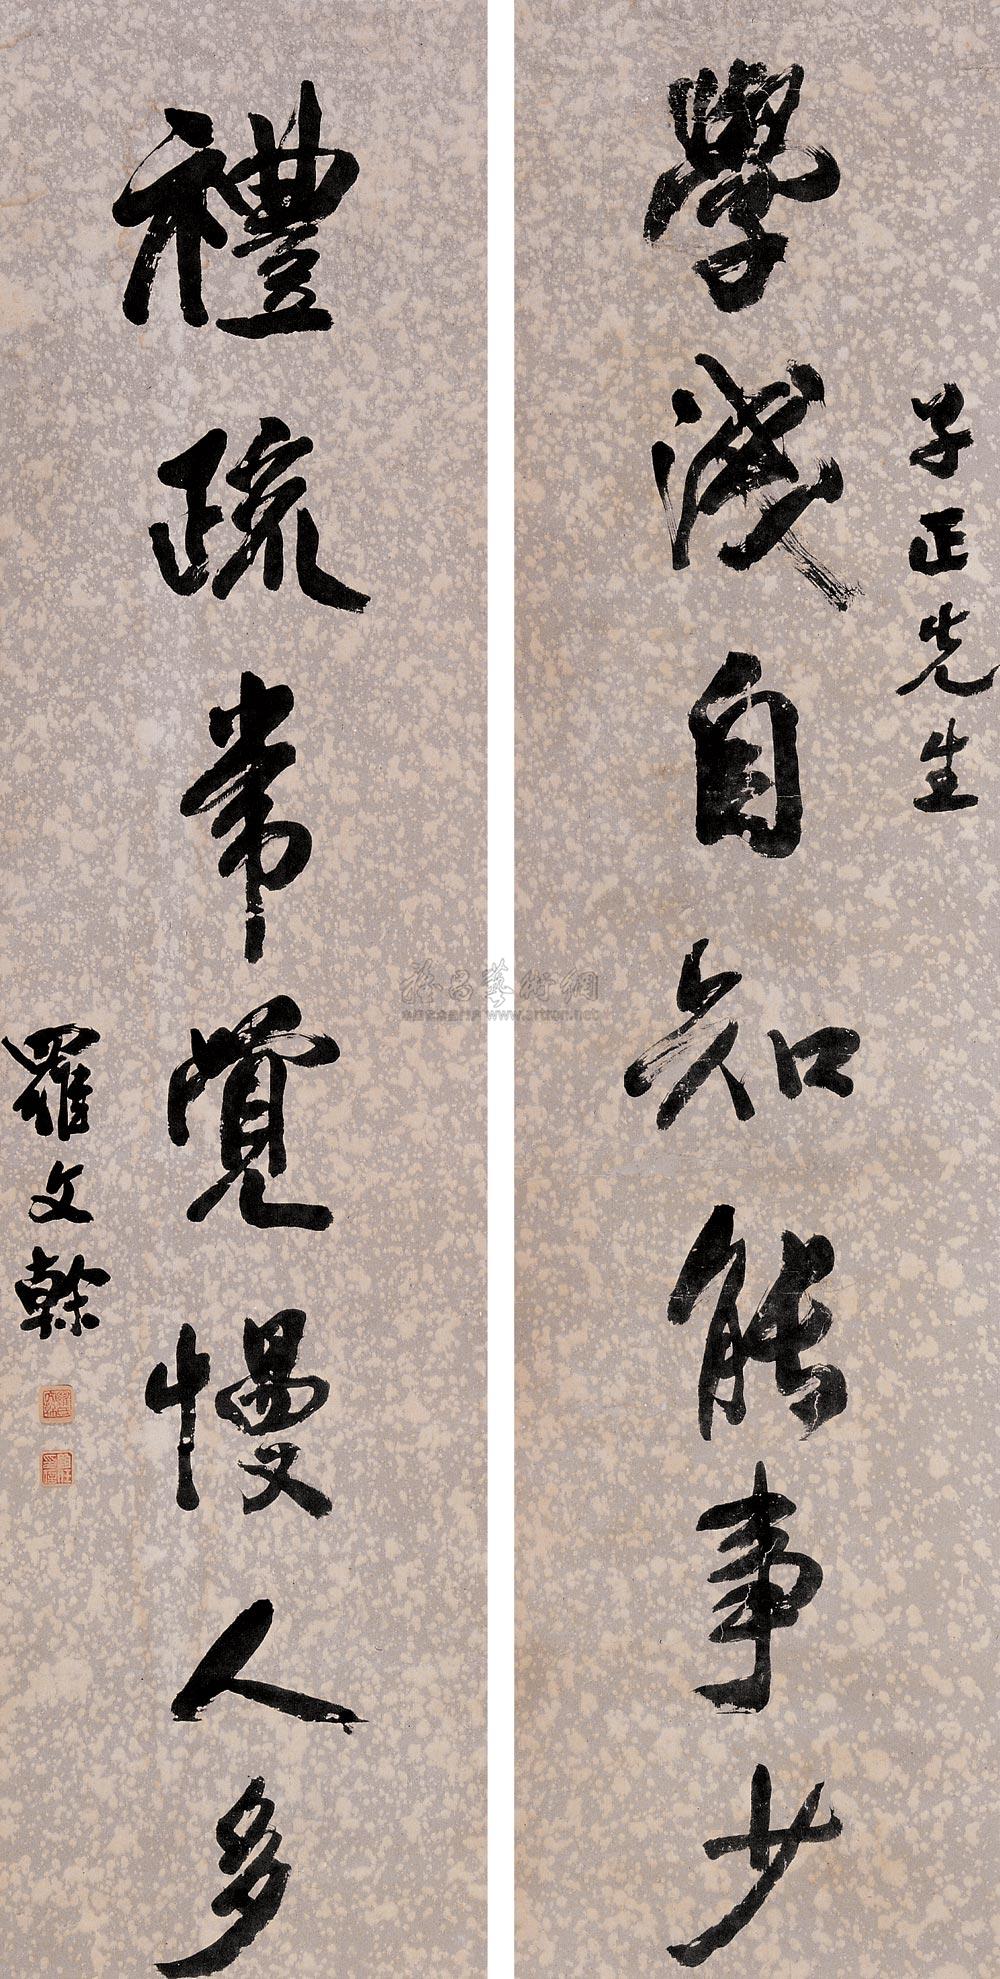 子正先生
學淺自知能事少
禮疏常覺慢人多
羅文榦
雅昌藝術網
www.artron.net